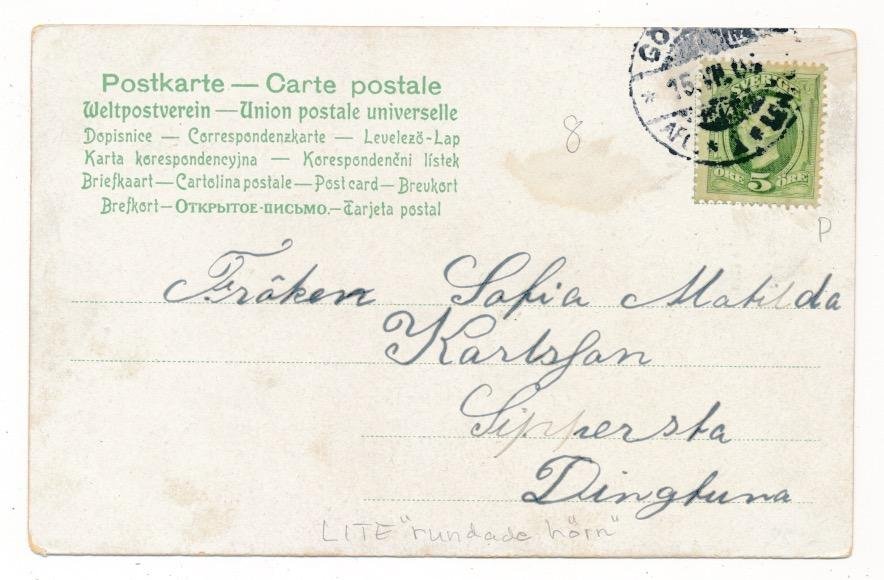 Postkarte — Carte postale
Weltpostverein — Union postale universelle
Dopisnice — Correspondenzkarte — Levelező-Lap
Karta korespondencyjna — Korespondenčni lístek
Briefkaart — Cartolina postale — Post card — Brevkort
Brefkort — Открытое-письмо. — Tarjeta postal
8
SVERIGE
ÖRE 5 ÖRE
P
Fröken Sofia Matilda
Karlsson
Sippersta
Dingtuna
LITE "rundade hörn"